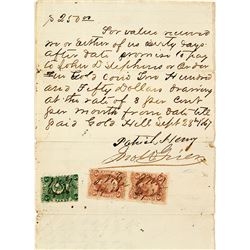 $250.00
For value received
we or either of us Sixty days
after date promise to pay
to John D Stephens or Order
in Gold coin Two Hundred
and Fifty Dollars bearing
at the rate of 3 per Cent
per month from Date till
paid Gold Hill Sept 28th/67
Patrick Henry